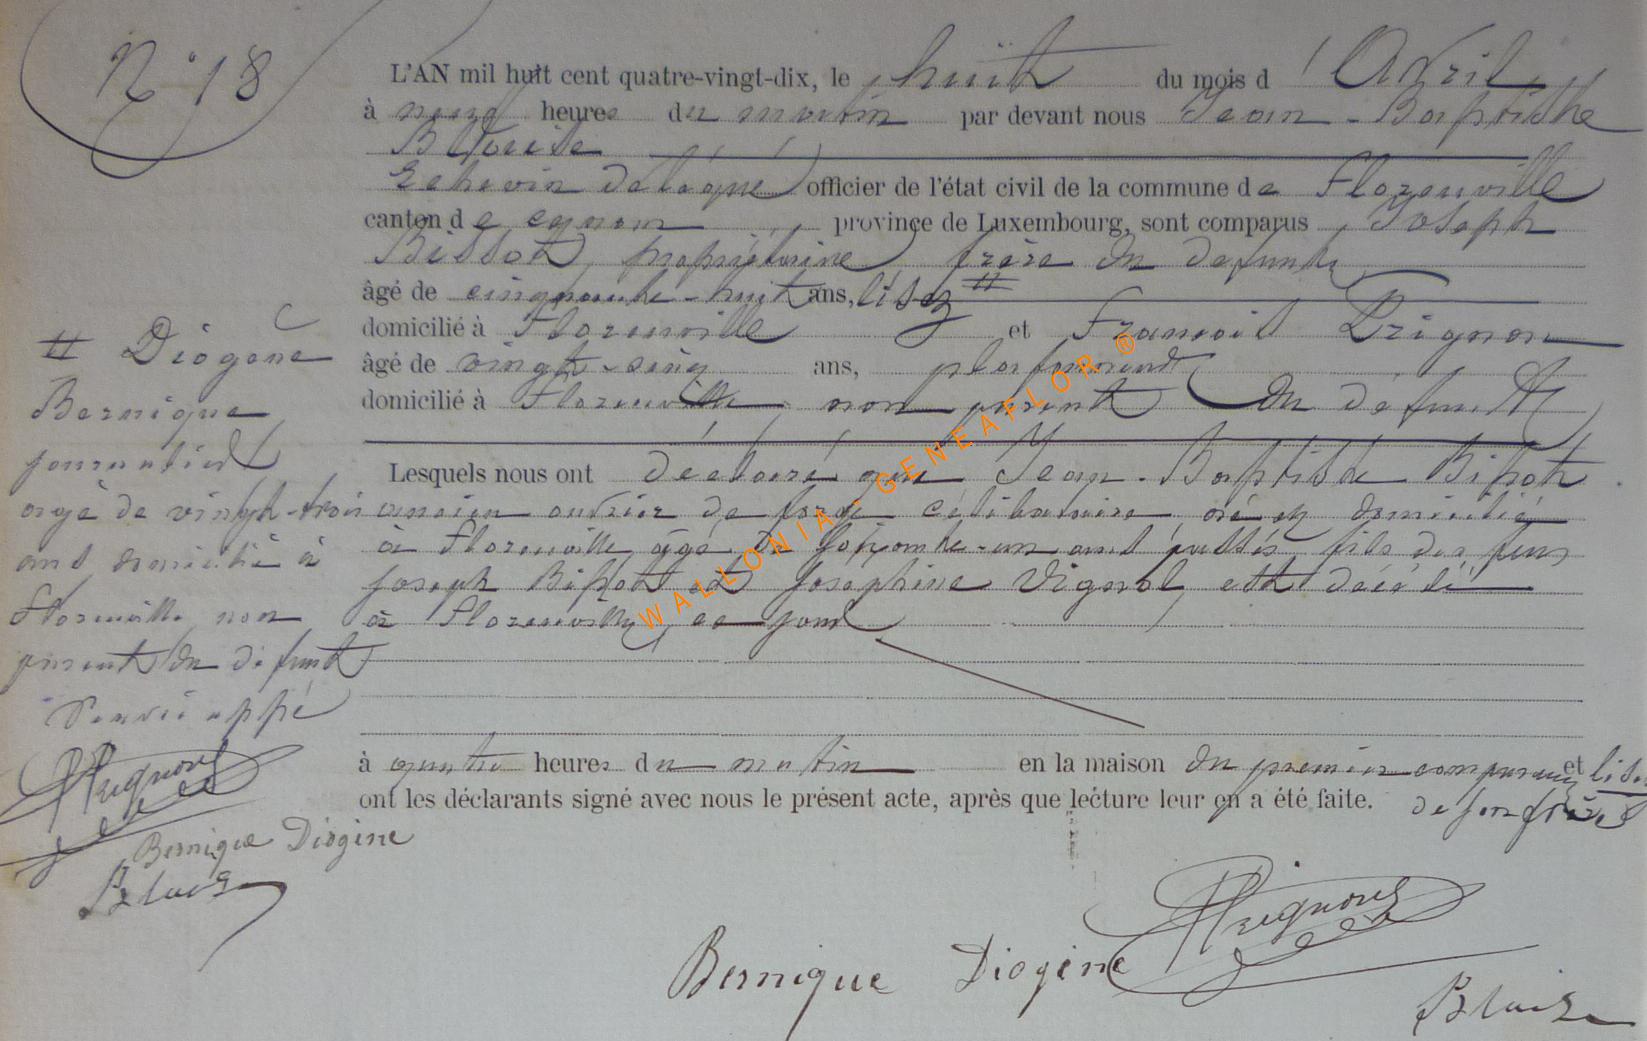 N° 18
L'AN mil huit cent quatre-vingt-dix, le huit du mois d'Avril
à neuf heures du matin par devant nous Jean-Baptiste
Echevin délégué officier de l'état civil de la commune de Florenville
canton de province de Luxembourg, sont comparus Joseph
propriétaire frère du defunt
âgé de cinquante-huit ans, lisez #
domicilié à Florenville et François Prignon
âgé de vingt-cinq ans, plafonneur
domicilié à Florenville non parent du défunt
Lesquels nous ont déclaré que Jean-Baptiste
ancien ouvrier de forge célibataire né et domicilié
à Florenville âgé de soixante-un ans passés, fils des feus
Joseph et Joséphine est décédé
à Florenville, ce jour
à quatre heures du matin en la maison du premier comparant et lisez
de son frère
ont les déclarants signé avec nous le présent acte, après que lecture leur en a été faite.
# Diogène
Bernique
journalier
agé de vingt-trois
ans domicilié à
Florenville non
parent du défunt
Prignon
Bernique Diogène
Prignon
Bernique Diogène
WALLONIA - GENEAFLOR ®